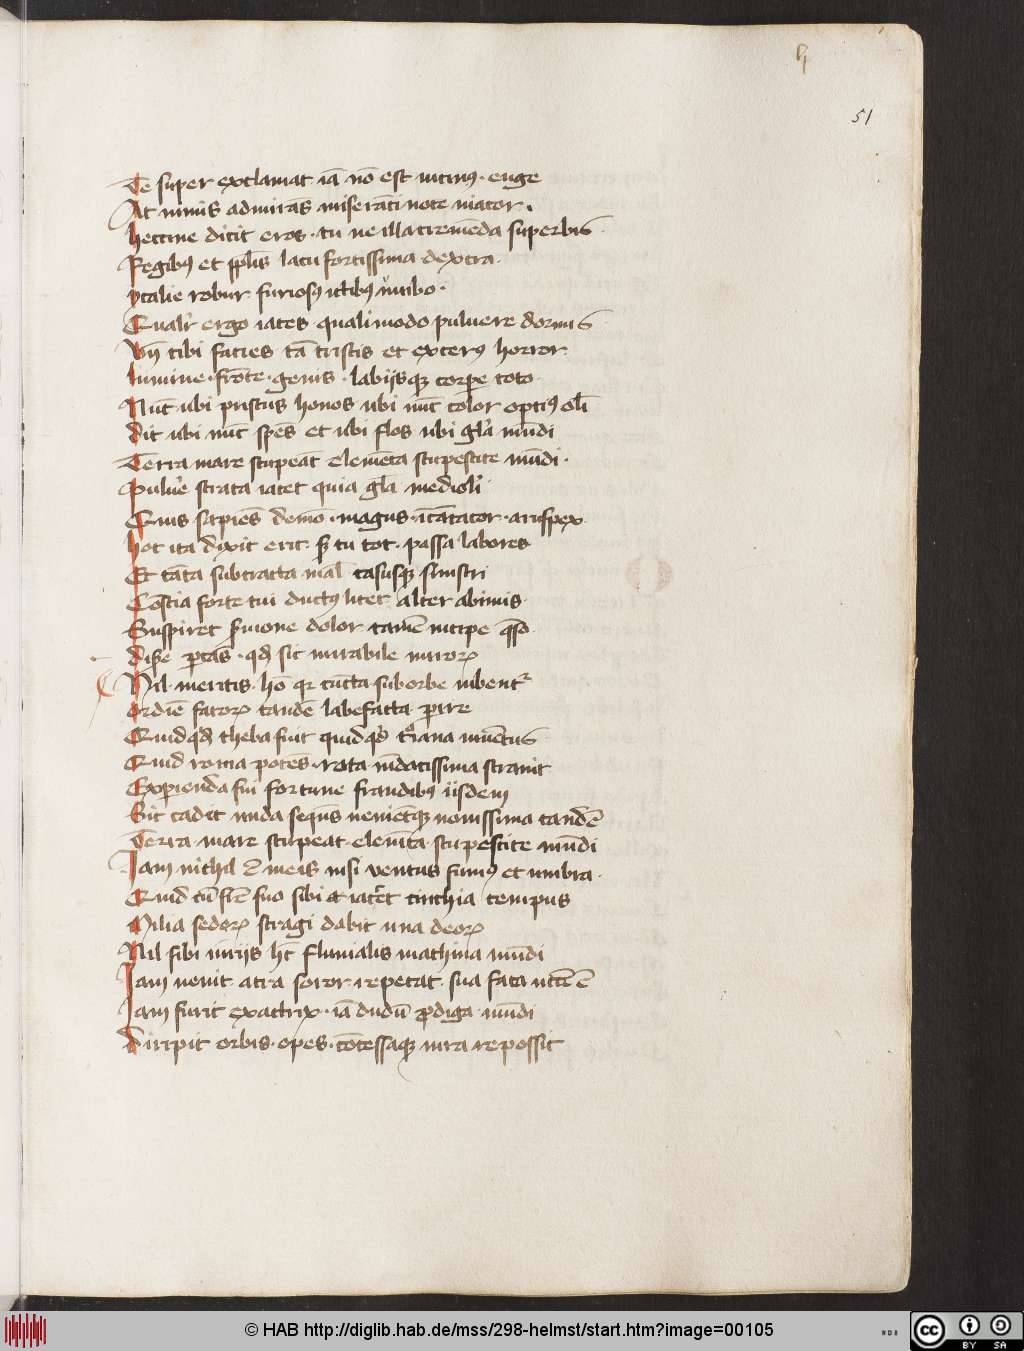 51
Te super exclamat iā nō est uicinꝰ · euge
At nimis admirās miserāti uote uiator ·
heccine dicit eros · tu ne illa tremēda superbis
Regibꝯ et pplīs lacu fortissima dextra ·
ytalie robur furiosꝯ ictibꝯ
Qualr̄ ergo iaces quali modo puluere dormis
Vn̄ tibi facies tā tristis et exterꝯ horror
lumine · frōte · genis · labijsqꝫ corꝑe toto ·
Nūc ubi pristus honos ubi nūc color optiꝯ oli
dic ubi nūc spes et ubi flos ubi gla mūdi
Terra mare stupeāt elemēta stupescite mūdi ·
Puluē strata iacet quia gla medioli
Quis sapiēs demō · magus · īcātator · aruspex
hoc ita dixit erit · sꝫ tu tot · passa labores
Et tāta subtracta mal casusqꝫ sinistri
Conscia forte tui ductꝯ licet alter abimis ·
Suspiret sꝫmone dolor tamē incipe
mirabile
Nil · meritis · hō qꝛ cūcta sub orbe iubent᷑
ordīe fatoꝝ tandē labefacta ꝑire
Quidqd theba fuit quidqd troiana iuuētus
Quid roma potēs · rota mūdatissima strauit
Expienda fui fortune fraudibꝯ iisdem
Sic cadit unda sequēs ueniētqꝫ nouissima tandē
Terra mare stupeat elemēta stupescite mūdi
Iam nichil ē meis nisi ventus fumꝯ et umbra ·
Quid cū fiē suo sibi tinthia tempus
Milia sedoꝝ stragi dabit una deoꝝ
Nil sibi iuriis hꝫ fluuialis machina mūdi
Iam uenit atra soror repetat sua fata
Iam furit exactrix · iā dudū ꝓdiga mūdi
Diripit orbis · opes · cōcessaqꝫ iura reposcit
© HAB http://diglib.hab.de/mss/298-helmst/start.htm?image=00105
WDB
cc
BY SA